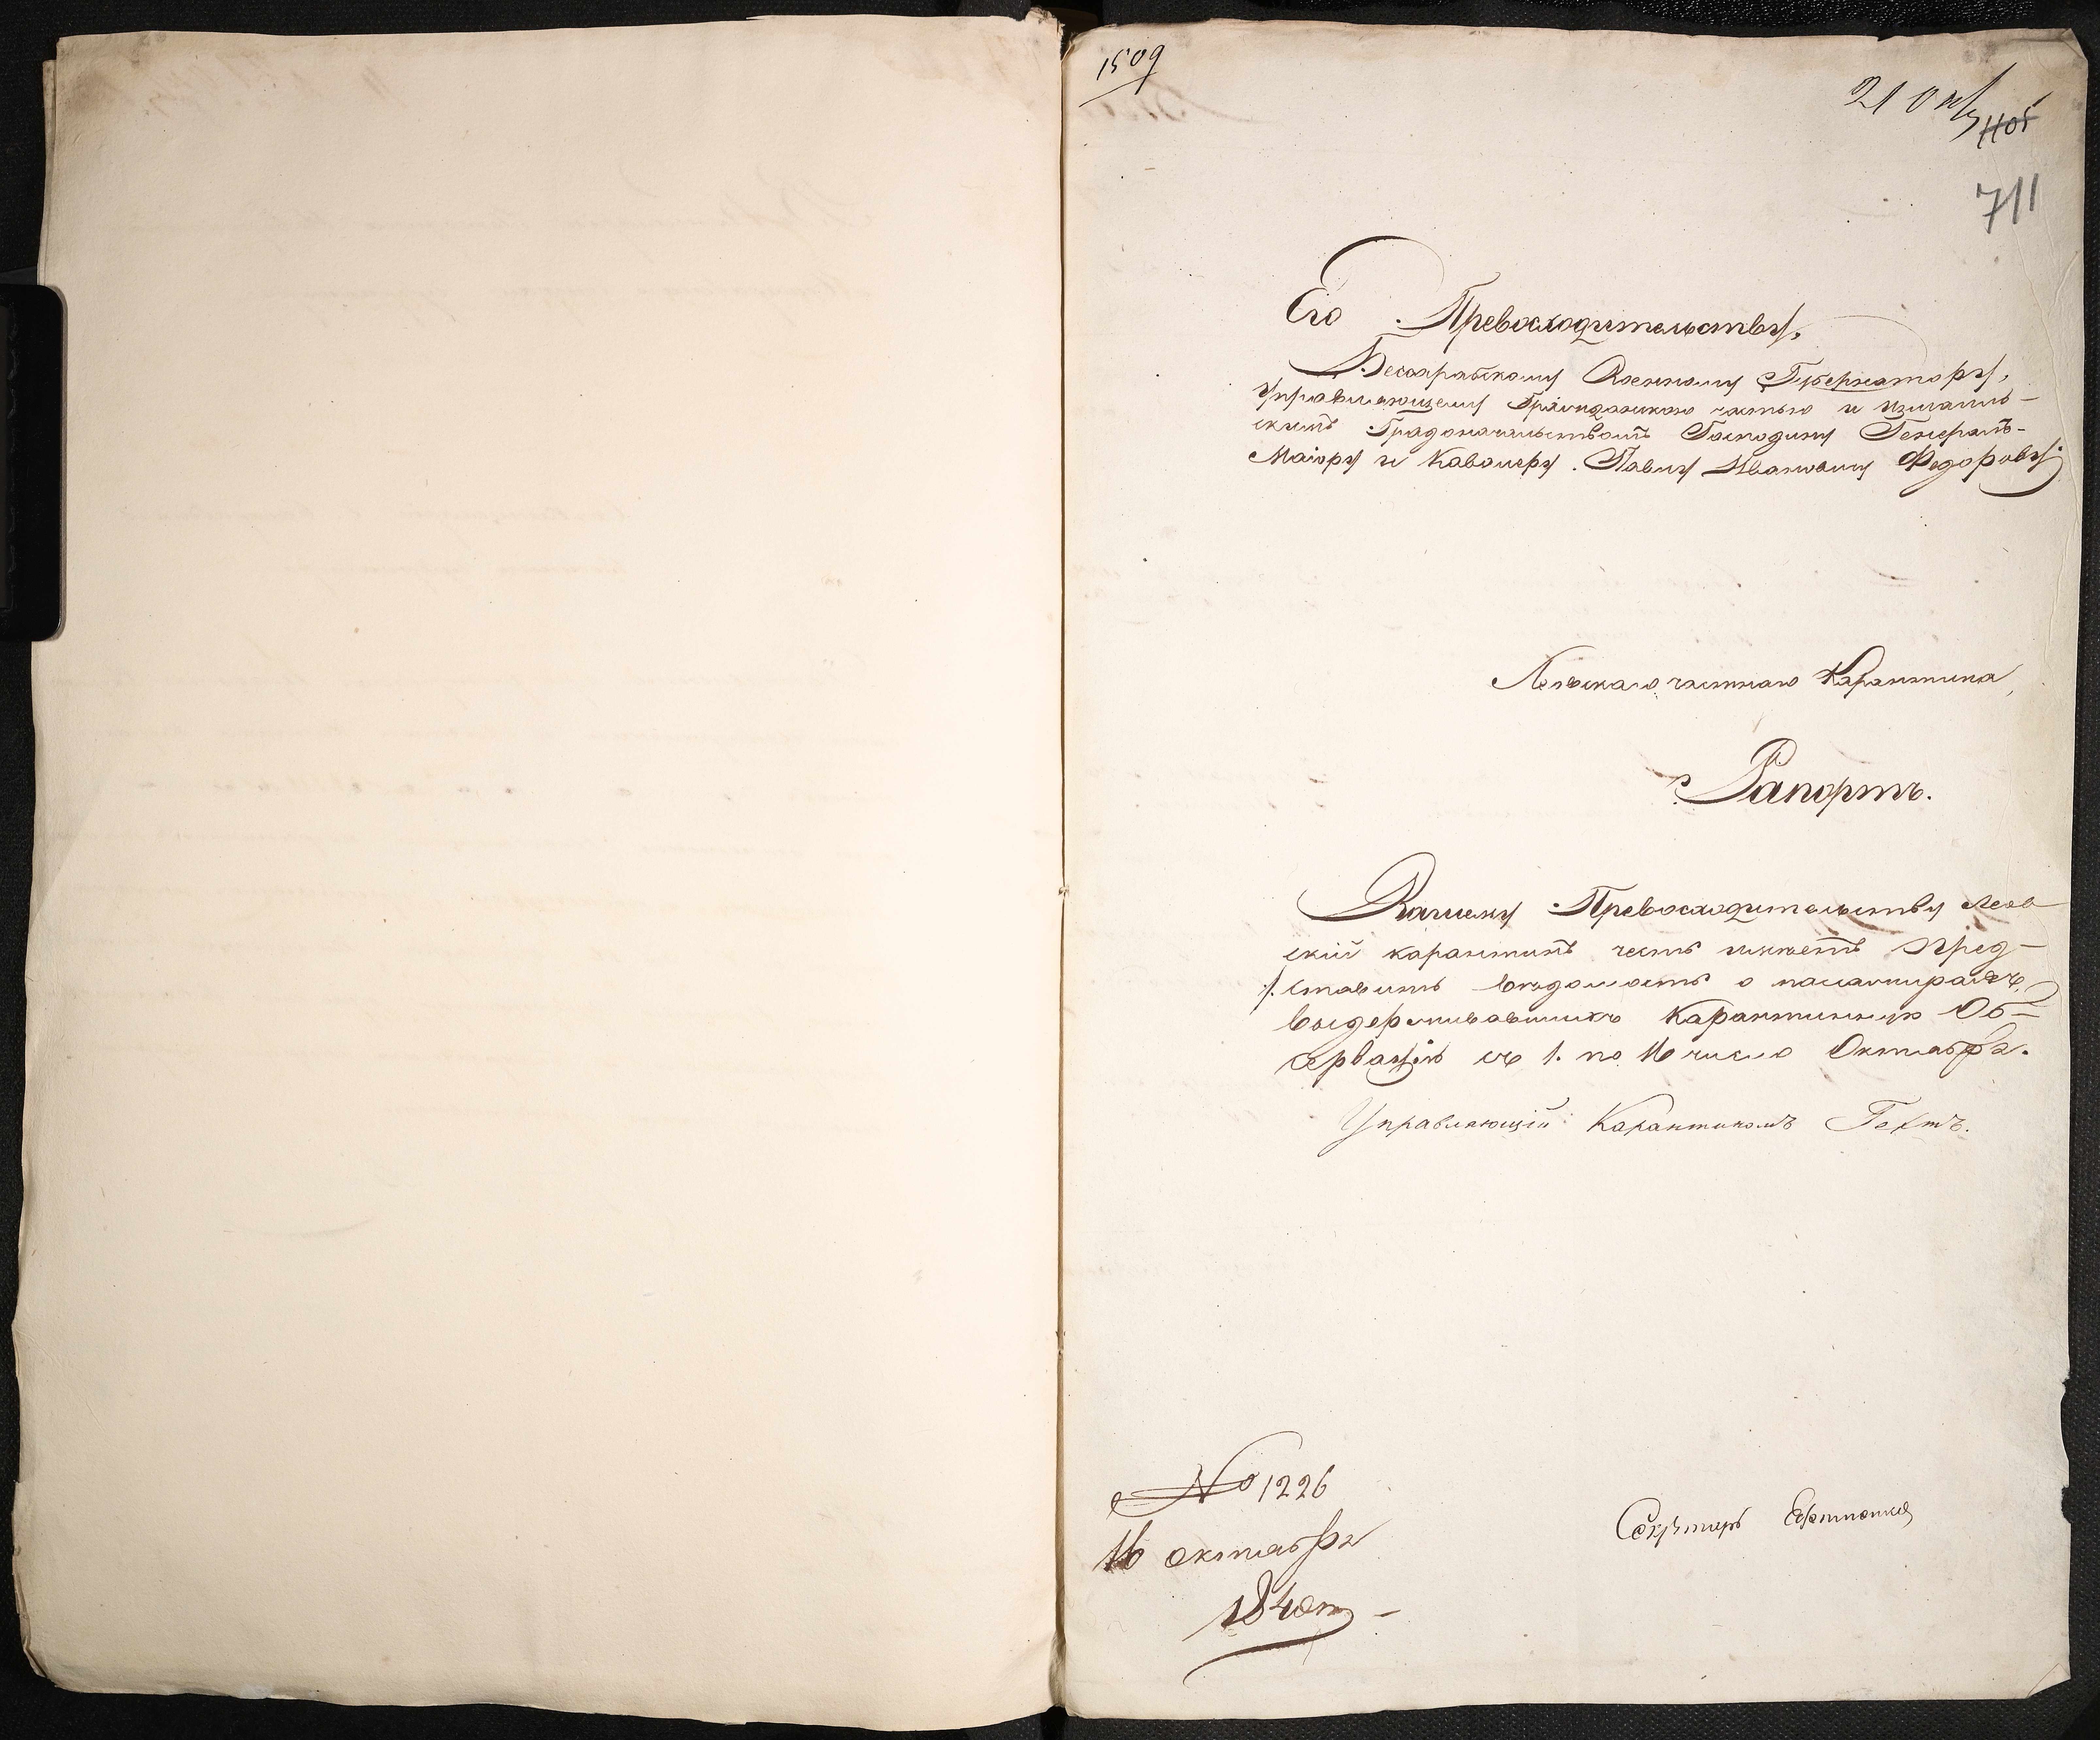 1509
21 Окт
711
Его Превосходительству,
Бессарабскому Военному Губернатору,
Управляющему Гражданскою частью и Измаиль-
скимъ Градоначальствомъ Господину Генералъ-
Маіору и Кавалеру Павлу Ивановичу Федорову.
Леовскаго частнаго Карантина
Рапортъ.
Вашему Превосходительству Леов
скій карантинъ честь имѣетъ пред-
ставить вѣдомость о пассажирахъ,
выдерживавшихъ карантинную Об-
сервацію съ 1. по 16 число Октября.
Управляющій Карантиномъ Гехтъ.
№ 1226
16 октября
1840
Секретарь